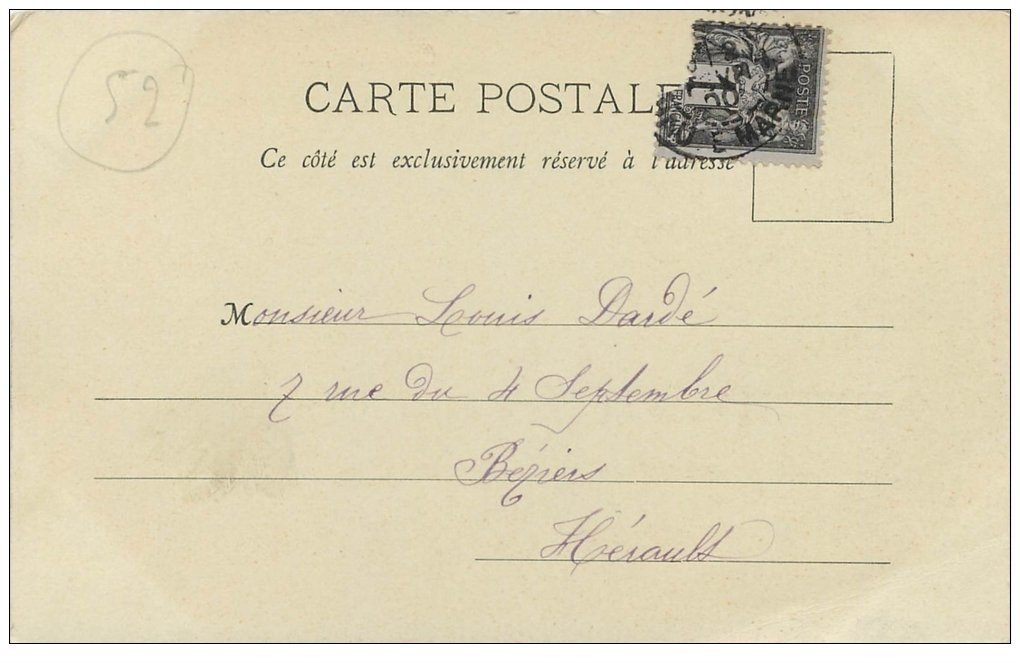 52
CARTE POSTALE
Ce côté est exclusivement réservé à l'adresse
POSTE
MARNE
Monsieur Louis Dardé
7 rue du 4 Septembre
Béziers
Hérault